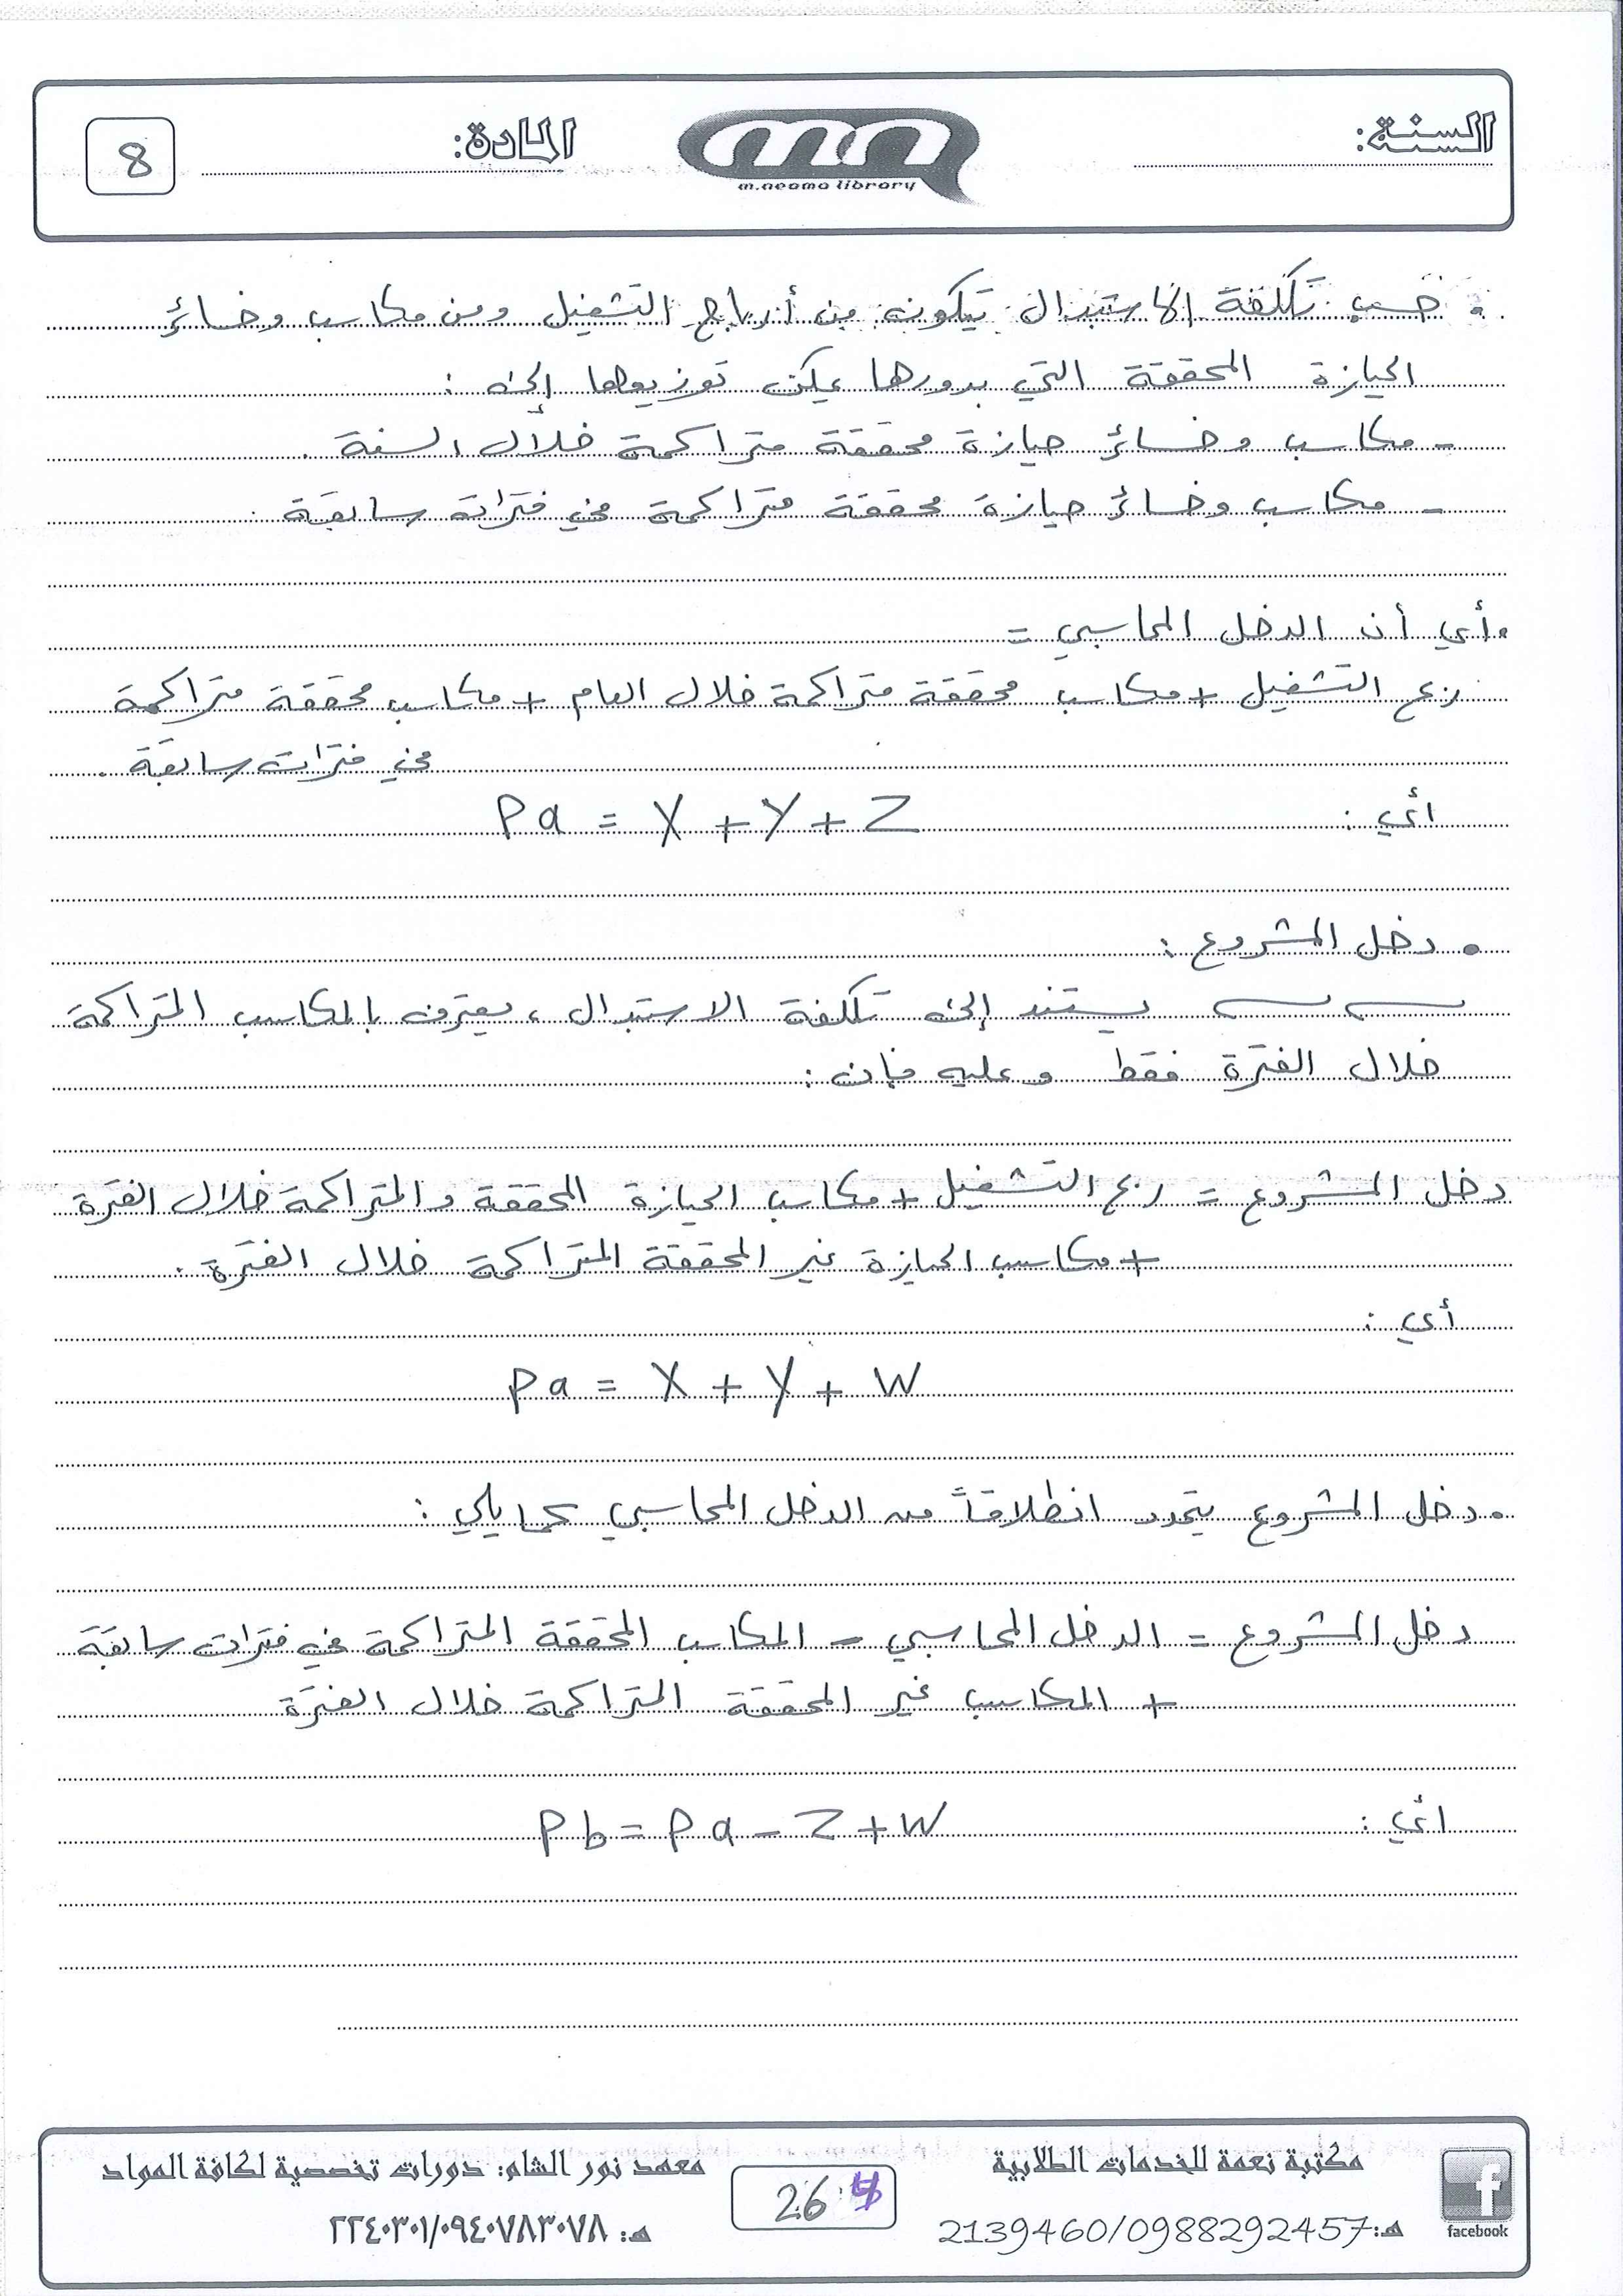 السنة:
m.neama library
المادة:
8
• حسب تكلفة الاستبدال يتكون من أرباح التشغيل ومن مكاسب وخسائر
الحيازة المحققة التي بدورها يمكن توزيعها إلى :
- مكاسب وخسائر حيازة محققة متراكمة خلال السنة .
- مكاسب وخسائر حيازة محققة متراكمة في فترات سابقة .
• أي أن الدخل المحاسبي =
ربح التشغيل + مكاسب محققة متراكمة خلال العام + مكاسب محققة متراكمة
في فترات سابقة .
أي : Pa = X + Y + Z
• دخل المشروع :
يستند إلى تكلفة الاستبدال ، يعترف بالمكاسب المتراكمة
خلال الفترة فقط وعليه فإن :
دخل المشروع = ربح التشغيل + مكاسب الحيازة المحققة والمتراكمة خلال الفترة
+ مكاسب الحيازة غير المحققة المتراكمة خلال الفترة .
أي :
Pa = X + Y + W
• دخل المشروع يتحدد انطلاقاً من الدخل المحاسبي كما يلي :
دخل المشروع = الدخل المحاسبي - المكاسب المحققة المتراكمة في فترات سابقة
+ المكاسب غير المحققة المتراكمة خلال الفترة
أي : Pb = Pa - Z + W
facebook
مكتبة نعمة للخدمات الطلابية
هـ: 2139460/0988292457
26
معهد نور الشام: دورات تخصصية لكافة المواد
هـ: ٢٢٤٠٣٠١/٠٩٤٠٧٨٣٠٧٨